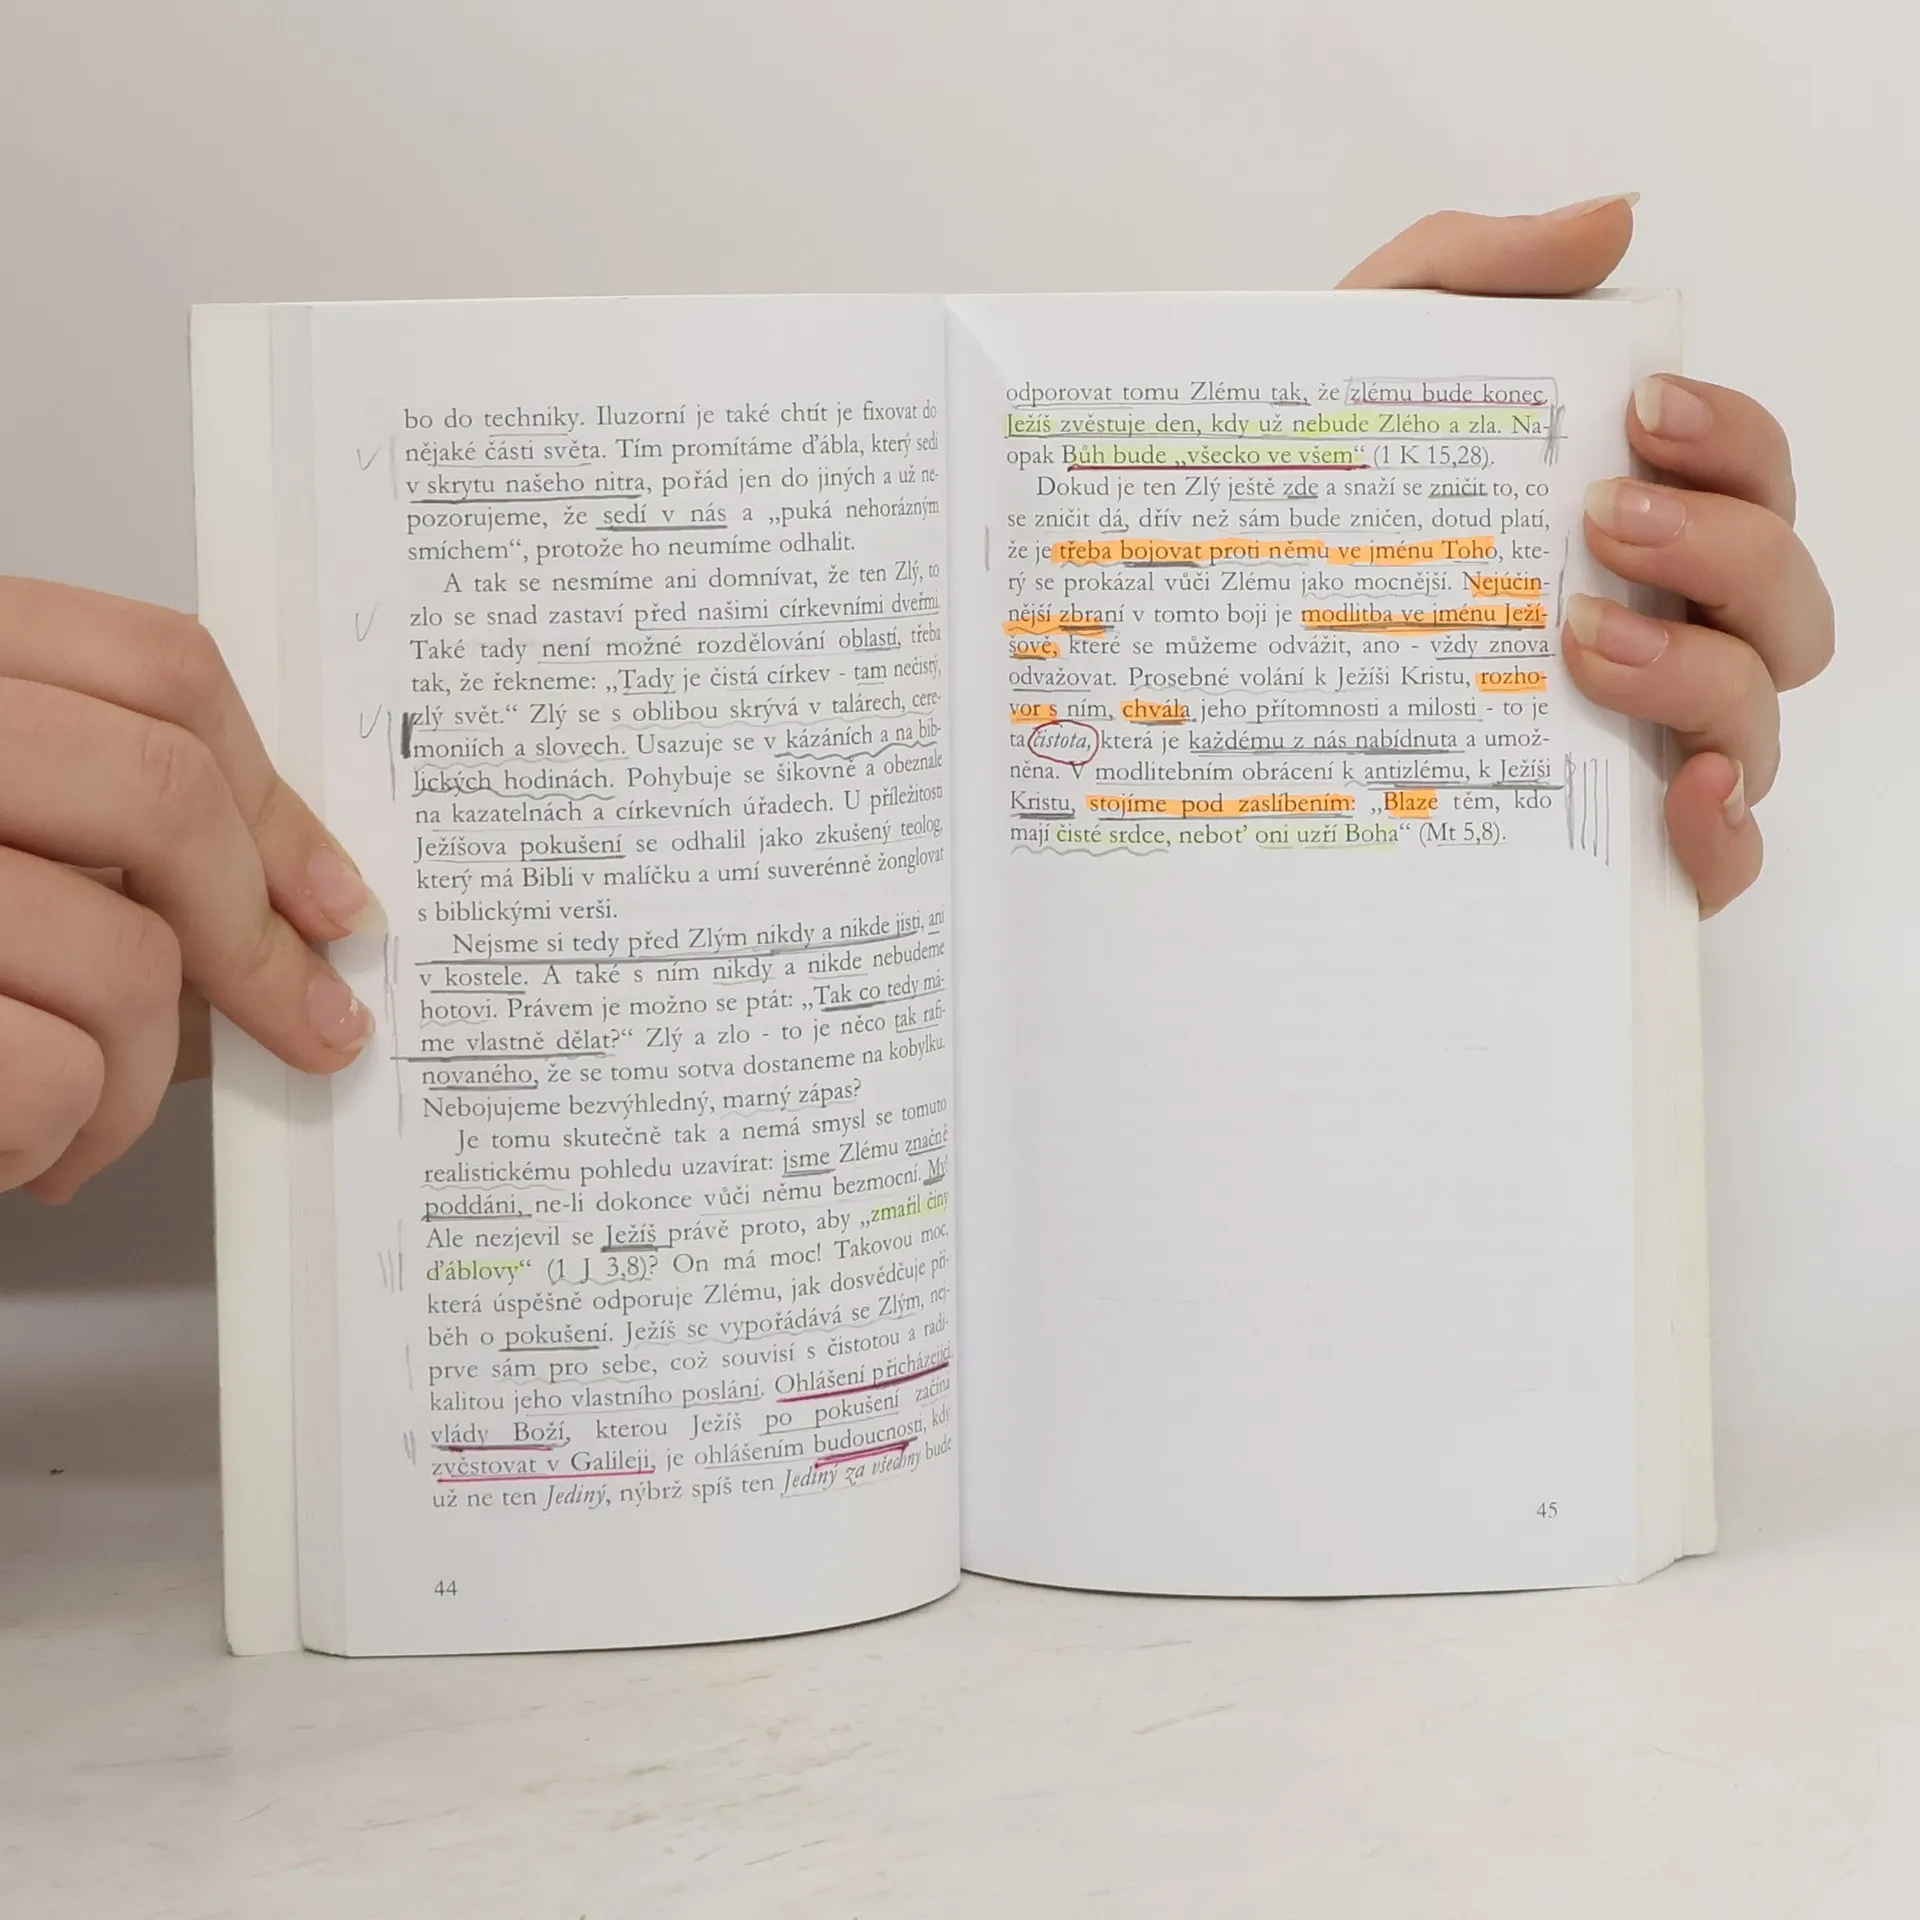 bo do techniky. Iluzorní je také chtít je fixovat do
nějaké části světa. Tím promítáme ďábla, který sedí
v skrytu našeho nitra, pořád jen do jiných a už ne-
pozorujeme, že sedí v nás a „puká nehorázným
smíchem“, protože ho neumíme odhalit.
A tak se nesmíme ani domnívat, že ten Zlý, to
zlo se snad zastaví před našimi církevními dveřmi.
Také tady není možné rozdělování oblastí, třeba
tak, že řekneme: „Tady je čistá církev - tam nečistý,
zlý svět.“ Zlý se s oblibou skrývá v talárech, cere-
moniích a slovech. Usazuje se v kázáních a na bib-
lických hodinách. Pohybuje se šikovně a obeznale
na kazatelnách a církevních úřadech. U příležitosti
Ježíšova pokušení se odhalil jako zkušený teolog,
který má Bibli v malíčku a umí suverénně žonglovat
s biblickými verši.
Nejsme si tedy před Zlým nikdy a nikde jisti, ani
v kostele. A také s ním nikdy a nikde nebudeme
hotovi. Právem je možno se ptát: „Tak co tedy má-
me vlastně dělat?“ Zlý a zlo - to je něco tak rafi-
novaného, že se tomu sotva dostaneme na kobylku.
Nebojujeme bezvýhledný, marný zápas?
Je tomu skutečně tak a nemá smysl se tomuto
realistickému pohledu uzavírat: jsme Zlému značně
poddáni, ne-li dokonce vůči němu bezmocní. My!
Ale nezjevil se Ježíš právě proto, aby „zmařil činy
ďáblovy“ (1 J 3,8)? On má moc! Takovou moc,
která úspěšně odporuje Zlému, jak dosvědčuje pří-
běh o pokušení. Ježíš se vypořádává se Zlým, nej-
prve sám pro sebe, což souvisí s čistotou a radi-
kalitou jeho vlastního poslání. Ohlášení přicházející
vlády Boží, kterou Ježíš po pokušení začíná
zvěstovat v Galileji, je ohlášením budoucnosti, kdy
už ne ten Jediný, nýbrž spíš ten Jediný za všechny bude
44
odporovat tomu Zlému tak, že zlému bude konec.
Ježíš zvěstuje den, kdy už nebude Zlého a zla. Na-
opak Bůh bude „všecko ve všem“ (1 K 15,28).
Dokud je ten Zlý ještě zde a snaží se zničit to, co
se zničit dá, dřív než sám bude zničen, dotud platí,
že je třeba bojovat proti němu ve jménu Toho, kte-
rý se prokázal vůči Zlému jako mocnější. Nejúčin-
nější zbraní v tomto boji je modlitba ve jménu Ježí-
šově, které se můžeme odvážit, ano - vždy znova
odvažovat. Prosebné volání k Ježíši Kristu, rozho-
vor s ním, chvála jeho přítomnosti a milosti - to je
ta čistota, která je každému z nás nabídnuta a umož-
něna. V modlitebním obrácení k antizlému, k Ježíši
Kristu, stojíme pod zaslíbením: „Blaze těm, kdo
mají čisté srdce, neboť oni uzří Boha“ (Mt 5,8).
45